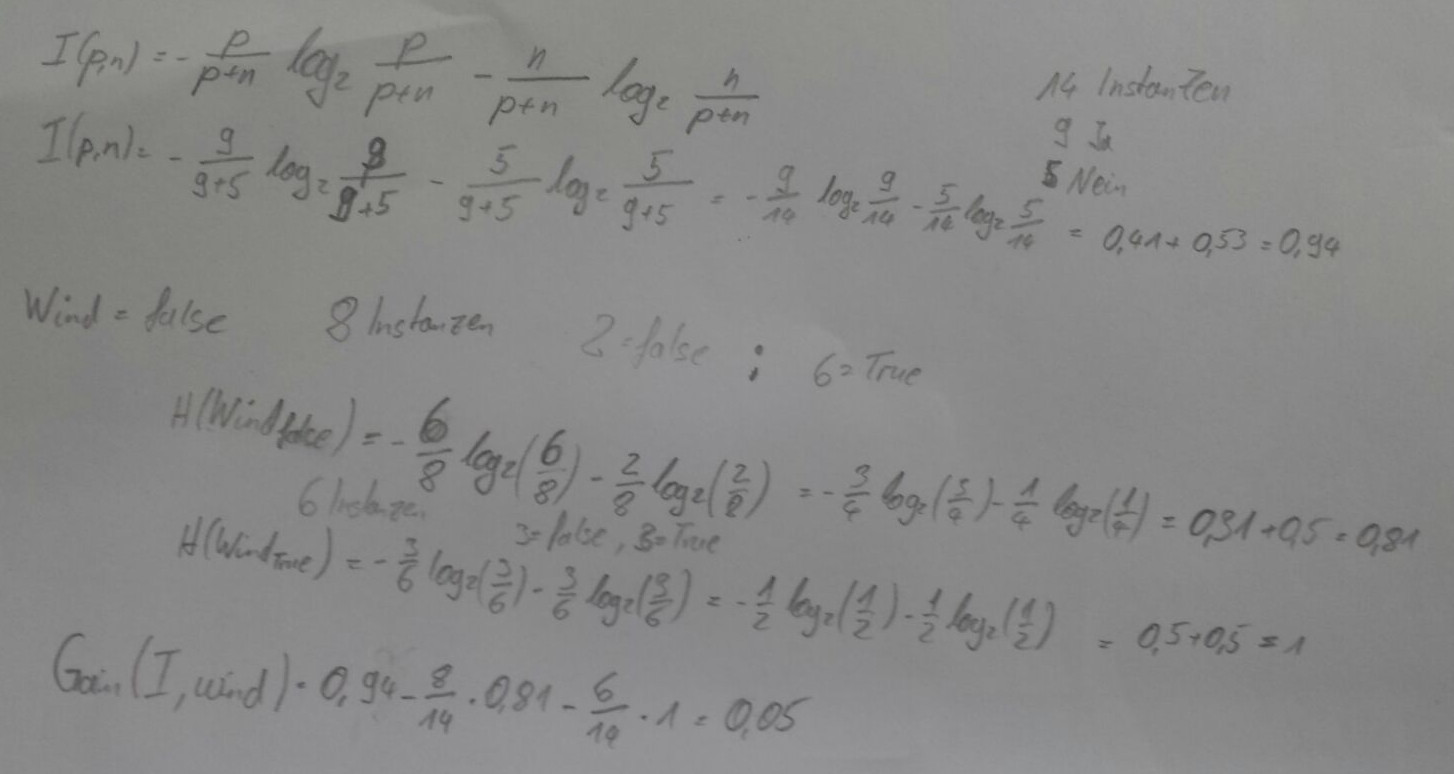 I(p,n) = - p/(p+n) log₂ p/(p+n) - n/(p+n) log₂ n/(p+n)
14 Instanzen
9 Ja
5 Nein
I(p,n) = - 9/(9+5) log₂ 9/(9+5) - 5/(9+5) log₂ 5/(9+5) = - 9/14 log₂ 9/14 - 5/14 log₂ 5/14 = 0,41 + 0,53 = 0,94
Wind = false 8 Instanzen 2 = false ; 6 = True
H(Wind_false) = - 6/8 log₂(6/8) - 2/8 log₂(2/8) = - 3/4 log₂(3/4) - 1/4 log₂(1/4) = 0,31 + 0,5 = 0,81
6 Instanzen 3 = false, 3 = True
H(Wind_True) = - 3/6 log₂(3/6) - 3/6 log₂(3/6) = - 1/2 log₂(1/2) - 1/2 log₂(1/2) = 0,5 + 0,5 = 1
Gain(I, wind) = 0,94 - 8/14 · 0,81 - 6/14 · 1 = 0,05